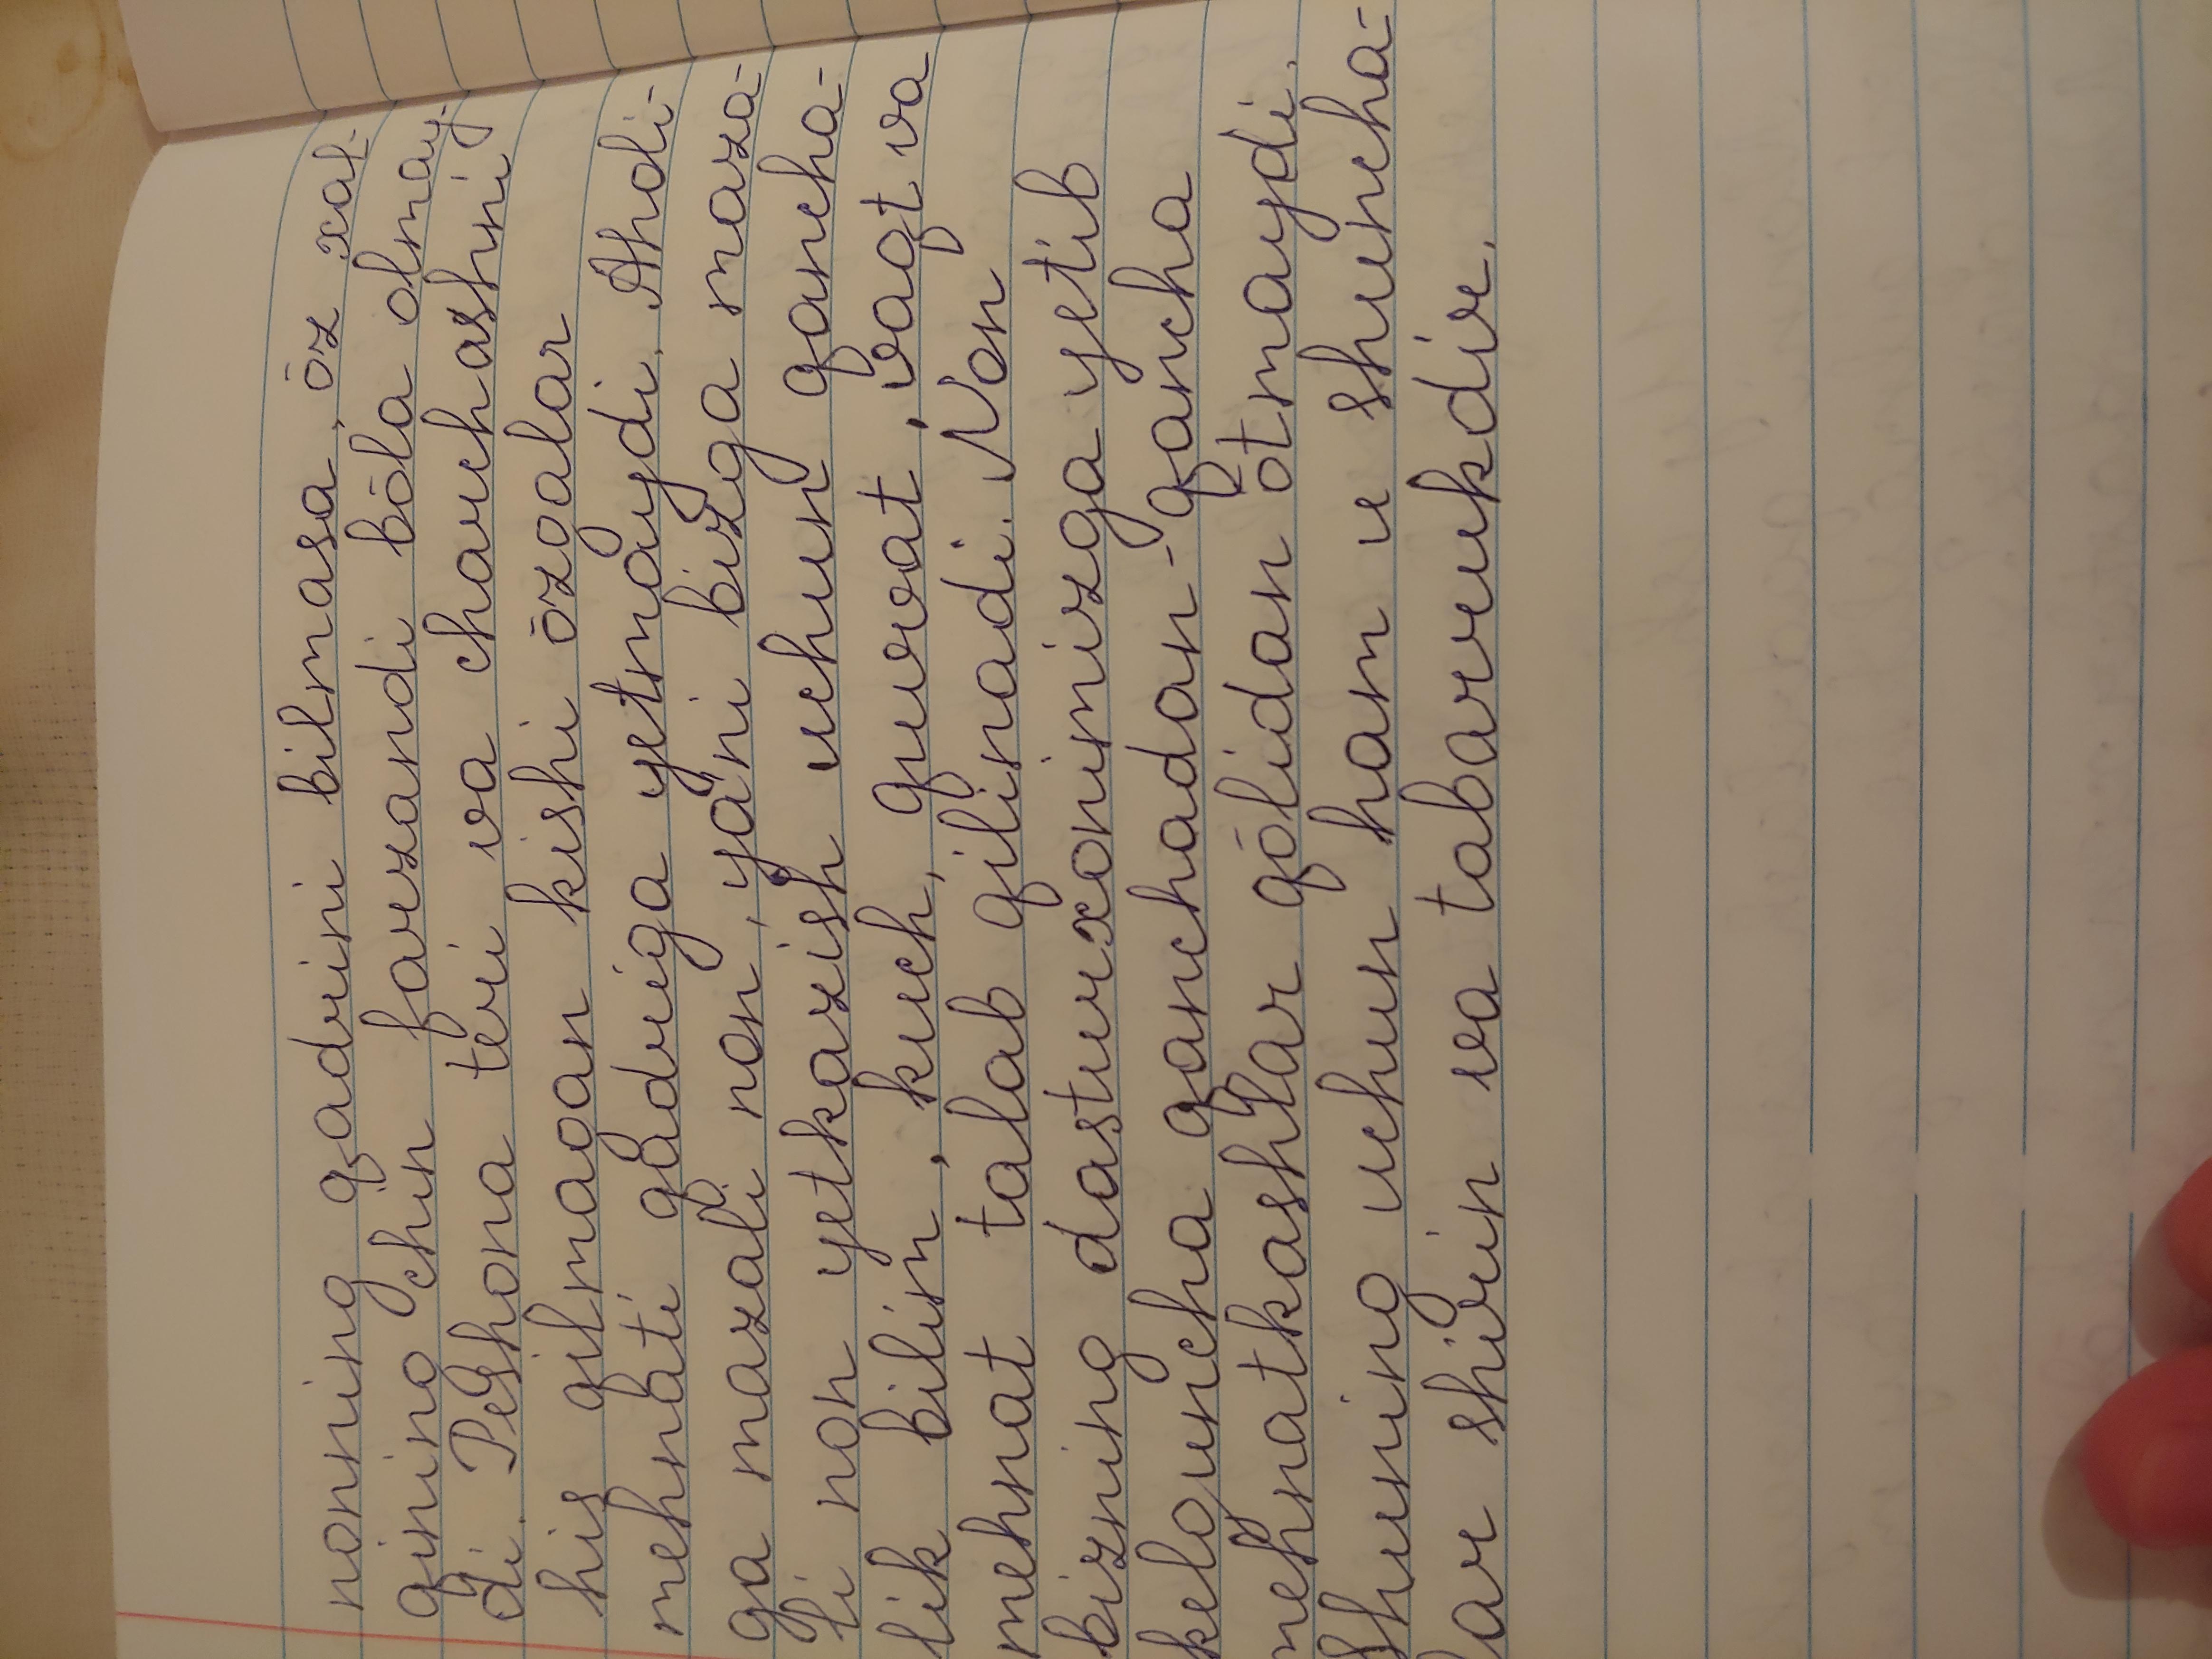 nonning qadrini bilmasa, ōz xal-
qining chin farzandi bōla olmay-
di. Peshona teri va charchashni
his qilmagan kishi ōzgalar
mehnati qadriga yetmaydi. Aholi-
ga mazali non, yani bizga maza-
li non yetkazish uchun qancha-
lik bilim, kuch, quvvat, vaqt va
mehnat talab qilinadi. Non
bizning dasturxonimizga yetib
kelguncha qanchadan-qancha
mehnatkashlar qōlidan ōtmaydi.
Shuning uchun ham u shuncha-
lar shirin va tabarrukdir.